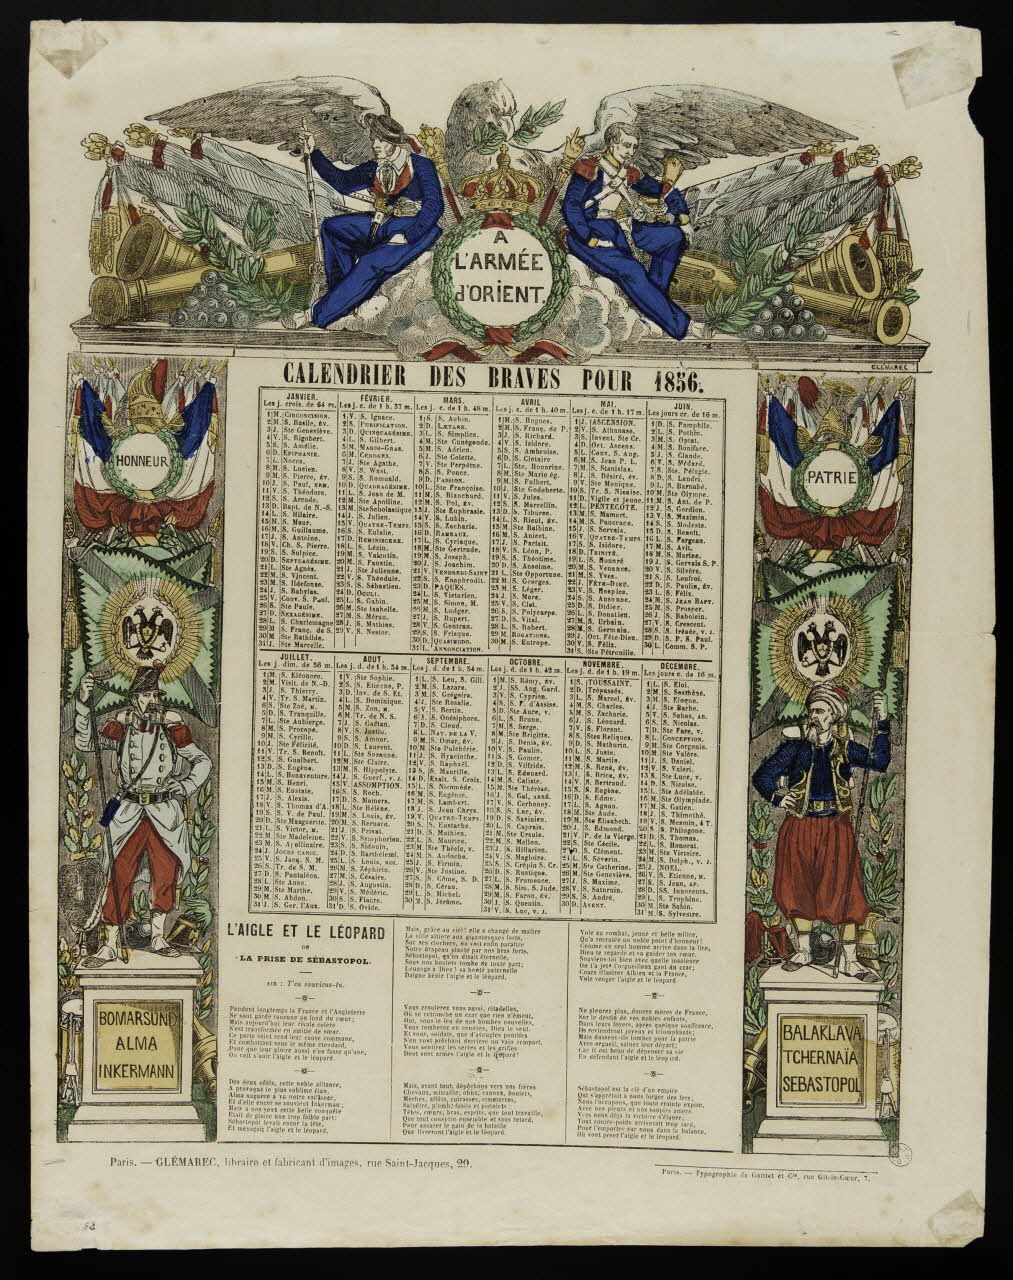 A
L'ARMÉE
d'ORIENT.
GLÉMAREC
HONNEUR
PATRIE
CALENDRIER DES BRAVES POUR 1856.
JANVIER.
Les j. crois. de 64 m.
1 M. CIRCONCISION.
2 M. S. Basile, év.
3 J. Ste Geneviève.
4 V. S. Rigobert.
5 S. S. Amélie.
6 D. EPIPHANIE.
7 L. Noces.
8 M. S. Lucien.
9 M. S. Pierre, év.
10 J. S. Paul, ERM.
11 V. S. Théodore.
12 S. S. Arcade.
13 D. Bapt. de N.-S.
14 L. S. Hilaire.
15 M. S. Maur.
16 M. S. Guillaume.
17 J. S. Antoine.
18 V. Ch. S. Pierre.
19 S. S. Sulpice.
20 D. SEPTUAGÉSIME.
21 L. Ste Agnès.
22 M. S. Vincent.
23 M. S. Ildefonse.
24 J. S. Babylas.
25 V. Conv. S. Paul.
26 S. Ste Paule.
27 D. SEXAGÉSIME.
28 L. S. Charlemagne
29 M. S. Franç. de S.
30 M. Ste Bathilde.
31 J. Ste Marcelle.
FÉVRIER.
Les j. c. de 1 h. 37 m.
1 V. S. Ignace.
2 S. PURIFICATION.
3 D. QUINQUAGÉSIME.
4 L. S. Gilbert.
5 M. MARDI-GRAS.
6 M. CENDRES.
7 J. Ste Agathe.
8 V. S. Wast.
9 S. S. Romuald.
10 D. QUADRAGÉSIME.
11 L. S. Jean de M.
12 M. Ste Apolline.
13 M. Ste Scholastique
14 J. S. Julien.
15 V. QUATRE-TEMPS.
16 S. S. Eulalie.
17 D. REMINISCERE.
18 L. S. Lézin.
19 M. S. Valentin.
20 M. S. Faustin.
21 J. Ste Julienne.
22 V. S. Théodule.
23 S. S. Sébastien.
24 D. OCULI.
25 L. S. Gabin.
26 M. Ste Isabelle.
27 M. S. Méran.
28 J. S. Mathias.
29 V. S. Nestor.
MARS.
Les j. c. de 1 h. 48 m.
1 S. S. Aubin.
2 D. LÆTARE.
3 L. S. Simplice.
4 M. Ste Cunégonde.
5 M. S. Adrien.
6 J. Ste Colette.
7 V. Ste Perpétue.
8 S. S. Ponce.
9 D. PASSION.
10 L. Ste Françoise.
11 M. S. Blanchard.
12 M. S. Pol, év.
13 J. Ste Euphrasie.
14 V. S. Lubin.
15 S. S. Zacharie.
16 D. RAMEAUX.
17 L. S. Cyriaque.
18 M. Ste Gertrude.
19 M. S. Joseph.
20 J. S. Joachim.
21 V. VENDREDI-SAINT
22 S. S. Epaphrodit.
23 D. PAQUES.
24 L. S. Victorien.
25 M. S. Simon, M.
26 M. S. Ludger.
27 J. S. Rupert.
28 V. S. Gontran.
29 S. S. Frisque.
30 D. QUASIMODO.
31 L. ANNONCIATION.
AVRIL
Les j. c. de 1 h. 40 m.
1 M. S. Hugues.
2 M. S. Franç. de P.
3 J. S. Richard.
4 V. S. Isidore.
5 S. S. Ambroise.
6 D. S. Clotaire
7 L. Ste. Honorine.
8 M. Ste Marie ég.
9 M. S. Fulbert.
10 J. Ste Godeberte.
11 V. S. Jules.
12 S. S. Marcellin.
13 D. S. Tiburce.
14 L. S. Rieul, év.
15 M. Ste Balbine.
16 M. S. Anicet.
17 J. S. Parfait.
18 V. S. Léon, P.
19 S. S. Théotime.
20 D. S. Anselme.
21 L. Ste Opportune.
22 M. S. Georges.
23 M. S. Léger.
24 J. S. Marc.
25 V. S. Clet.
26 S. S. Polycarpe.
27 D. S. Vital.
28 L. S. Robert.
29 M. ROGATIONS.
30 M. S. Eutrope.
MAI.
Les j. c. de 1 h. 17 m.
1 J. ASCENSION.
2 V. S. Athanase.
3 S. Invent. Ste Cr.
4 D. Oct. Ascens.
5 L. Conv. S. Aug.
6 M. S. Jean P. L.
7 M. S. Stanislas.
8 J. S. Désiré, év.
9 V. Ste Monique.
10 S. Tr. S. Nicaise.
11 D. Vigile et jeune.
12 L. PENTECÔTE.
13 M. S. Mamert.
14 M. S. Pancrace.
15 J. S. Servais.
16 V. QUATRE-TEMPS.
17 S. S. Isidore.
18 D. TRINITÉ.
19 L. S. Honoré
20 M. S. Venance.
21 M. S. Yves.
22 J. FÊTE-DIEU.
23 V. S. Hospice.
24 S. S. Ausonne.
25 D. S. Didier.
26 L. S. Donatien.
27 M. S. Urbain.
28 M. S. Germain.
29 J. Oct. Fête-Dieu.
30 V. S. Félix.
31 S. Ste Pétronille.
JUIN.
Les jours cr. de 16 m.
1 D. S. Pamphile.
2 L. S. Pothin.
3 M. S. Optat.
4 M. S. Boniface.
5 J. S. Claude.
6 V. S. Médard.
7 S. Ste. Pélagie.
8 D. S. Landri.
9 L. S. Barnabé.
10 M. Ste Olympe.
11 M. S. Ant. de P.
12 J. S. Gordien.
13 V. S. Maximin.
14 S. S. Modeste.
15 D. S. Benoît.
16 L. S. Fargeau.
17 M. S. Avit.
18 M. S. Marine.
19 J. S. Gervais S. P.
20 V. S. Silvère.
21 S. S. Leufroi.
22 D. S. Paulin, év.
23 L. S. Félix.
24 M. S. JEAN BAPT.
25 M. S. Prosper.
26 J. S. Babolein.
27 V. S. Crescent.
28 S. S. Irénée, V. J.
29 D. S. P. S. Paul.
30 L. Comm. S. P.
JUILLET.
Les j. dim. de 56 m.
1 M. S. Eléonore.
2 M. Visit. de N.-D.
3 J. S. Thierry.
4 V. Tr. S. Martin
5 S. Ste Zoé, M.
6 D. S. Tranquille.
7 L. Ste Aubierge.
8 M. S. Procope.
9 M. S. Cyrille.
10 J. Ste Félicité.
11 V. Tr. S. Benoît.
12 S. S. Gualbert.
13 D. S. Eugène.
14 L. S. Bonaventure.
15 M. S. Henri.
16 M. S. Eustate.
17 J. S. Alexis.
18 V. S. Thomas d'A.
19 S. S. V. de Paul.
20 D. Ste Marguerite.
21 L. S. Victor, M.
22 M. Ste Madeleine.
23 M. S. Apollinaire.
24 J. JOURS CANIC.
25 V. S. Jacq. S. M.
26 S. Tr. de S. M.
27 D. S. Pantaléon.
28 L. Ste Anne.
29 M. Ste Marthe.
30 M. S. Abdon.
31 J. S. Ger. l'Aux.
AOUT.
Les j. d. de 1 h. 34 m.
1 V. Ste Sophie.
2 S. S. Etienne, P.
3 D. Inv. de S. Et.
4 L. S. Dominique.
5 M. S. Zon, M.
6 M. Tr. de N. S.
7 J. S. Gaëtan.
8 V. S. Justin.
9 S. S. Amour.
10 D. S. Laurent.
11 L. Ste Suzanne.
12 M. Ste Claire.
13 M. S. Hippolyte.
14 J. S. Guerf., V. J.
15 V. ASSOMPTION.
16 S. S. Roch.
17 D. S. Mamers.
18 L. Ste Hélène.
19 M. S. Louis, év.
20 M. S. Bernard.
21 J. S. Privat.
22 V. S. Symphorien.
23 S. S. Sidouin.
24 D. S. Barthélemi.
25 L. S. Louis, ROI.
26 M. S. Zéphirin.
27 M. S. Césaire.
28 J. S. Augustin.
29 V. S. Médéric.
30 S. S. Fiacre.
31 D. S. Ovide.
SEPTEMBRE.
Les j. d. de 1 h. 54 m.
1 L. S. Leu, S. Gill.
2 M. S. Lazare.
3 M. S. Grégoire.
4 J. Ste Rosalie.
5 V. S. Bertin.
6 S. S. Onésiphore.
7 D. S. Cloud.
8 L. NAT. DE LA V.
9 M. S. Omer, év.
10 M. Ste Pulchérie.
11 J. S. Hyacinthe.
12 V. S. Raphaël.
13 S. S. Maurille.
14 D. Exalt. S. Croix.
15 L. S. Nicomède.
16 M. S. Eugénie.
17 M. S. Lambert.
18 J. S. Jean Chrys.
19 V. QUATRE-TEMPS.
20 S. S. Eustache.
21 D. S. Mathieu.
22 L. S. Maurice.
23 M. Ste Thècle, V.
24 M. S. Andoche.
25 J. S. Firmin.
26 V. Ste Justine.
27 S. S. Côme, S. D.
28 D. S. Céran.
29 L. S. Michel.
30 M. S. Jérôme.
OCTOBRE.
Les j. d. de 1 h. 42 m.
1 M. S. Rémy, év.
2 J. SS. Ang. Gard.
3 V. S. Cyprien.
4 S. S. F. d'Assise.
5 D. Ste Aure, V.
6 L. S. Bruno.
7 M. S. Serge.
8 M. Ste Brigitte.
9 J. S. Denis, év.
10 V. S. Paulin.
11 S. S. Gomer.
12 D. S. Vilfride.
13 L. S. Edouard.
14 M. S. Caliste.
15 M. Ste Thérèse.
16 J. S. Gal, ABBÉ.
17 V. S. Cerboney.
18 S. S. Luc, év.
19 D. S. Savinien.
20 L. S. Caprais.
21 M. Ste Ursule.
22 M. S. Mellon.
23 J. S. Hillarion.
24 V. S. Magloire.
25 S. S. Crépin S. Cr.
26 D. S. Rustique.
27 L. S. Frumence.
28 M. S. Sim. S. Jude.
29 M. S. Faron, év.
30 J. S. Quentin.
31 V. S. Luc, V. J.
NOVEMBRE.
Les j. d. de 1 h. 19 m.
1 S. TOUSSAINT.
2 D. Trépassés.
3 L. S. Marcel, év.
4 M. S. Charles.
5 M. S. Zacharie.
6 J. S. Léonard.
7 V. S. Florent.
8 S. Stes Reliques.
9 D. S. Mathurin.
10 L. S. Juste.
11 M. S. Martin.
12 M. S. René, év.
13 J. S. Brice, év.
14 V. S. Bertrand.
15 S. S. Eugène.
16 D. S. Edme.
17 L. S. Agnan.
18 M. S. Aude.
19 M. Ste Elisabeth.
20 J. S. Edmond.
21 V. P. de la Vierge.
22 S. Ste Cécile.
23 D. S. Clément.
24 L. S. Séverin.
25 M. Ste Catherine.
26 M. Ste Geneviève.
27 J. S. Maxime.
28 V. S. Saturnin.
29 S. S. André.
30 D. AVENT.
DÉCEMBRE.
Les jours c. de 16 m.
1 L. S. Eloi.
2 M. S. Sosthène.
3 M. S. Eloque.
4 J. Ste Barbe.
5 V. S. Sabas, AB.
6 S. S. Nicolas.
7 D. Ste Fare, V.
8 L. CONCEPTION.
9 M. Ste Gorgonie.
10 M. Ste Valère.
11 J. S. Daniel.
12 V. S. Valeri.
13 S. Ste Luce, V.
14 D. S. Nicaise.
15 L. Ste Adélaïde.
16 M. Ste Olympiade.
17 M. S. Gatien.
18 J. S. Thimothé.
19 V. S. Mesmin, 4 T.
20 S. S. Philogone.
21 D. S. Thomas.
22 L. S. Honorat.
23 M. Ste Victoire.
24 M. S. Delph., V. J.
25 J. NOËL.
26 V. S. Etienne, M.
27 S. S. Jean, AP.
28 D. SS. Innocents.
29 L. S. Trophine.
30 M. Ste Sabin.
31 M. S. Sylvestre.
L'AIGLE ET LE LÉOPARD
OU
LA PRISE DE SÉBASTOPOL.
AIR : T'en souviens-tu.
Pendant longtemps la France et l'Angleterre
Se sont gardé rancune au fond du cœur;
Mais aujourd'hui leur rivale colère
S'est transformée en amitié de sœur.
Le bon droit rend leur cause commune,
Et combattant sous le même étendard,
Pour que leur gloire aussi n'en fasse qu'une,
On voit s'unir l'aigle et le léopard.
Des deux côtés, cette noble alliance,
A provoqué le plus sublime élan.
Alma suguère a vu notre vaillance,
Et d'elle encor se souvient Inkerman;
Mais à nos yeux cette belle conquête
Etait de gloire une trop faible part:
Sébastopol levait encor la tête,
Et menaçait l'aigle et le léopard.
Mais, grâce au ciel! elle a changé de maître
La ville altière aux gigantesques forts,
Sur ses clochers, on voit enfin paraître
Notre drapeau planté par nos bras forts.
Sébastopol, qu'on disait éternelle,
Sous nos boulets tombe de toute part;
Louange à Dieu! sa bonté paternelle
Daigne bénir l'aigle et le léopard.
Vous croulerez vous aussi, citadelles,
Où se retranche un czar que rien n'émeut,
Oui, sous le feu de nos bombes nouvelles,
Vous tomberez en cendres, Dieu le veut.
Et vous, soldats, que d'aveugles pensées
S'en vont prêchant derrière un vain rempart,
Vous sentirez les serres et les griffes
Dont sont armés l'aigle et le léopard!
Mais, avant tout, dépêchons vers nos frères
Chevaux, mitraille, obus, canons, boulets,
Mèches, affûts, cuirasses, cimeterres,
Salpêtre, plomb, fusils et pistolets:
Têtes, cœurs, bras, esprits, que tout travaille,
Que tout conspire ensemble et sans retard,
Pour assurer le gain de la bataille
Que livreront l'aigle et le léopard.
Vole au combat, jeune et belle milice,
Qu'a recrutée un noble point d'honneur!
Comme un seul homme arrive dans la lice,
Dieu te regarde et va guider ton cœur.
Souviens-toi bien avec quelle insolence
On t'a jeté l'orgueilleux gant du czar;
Cours illustrer Albion et la France,
Vole venger l'aigle et le léopard.
Ne pleurez plus, douces mères de France,
Sur le destin de vos nobles enfants,
Dans leurs foyers, après quelque souffrance,
Ils rentreront joyeux et triomphants;
Mais dussent-ils tomber pour la patrie
Avec orgueil, saluez leur départ;
Car il est beau de dépenser sa vie
En défendant l'aigle et le léopard.
Sébastopol est la clé d'un empire
Qui s'apprêtait à nous forger des fers;
Nous l'occupons, que toute crainte expire,
Avec nos pleurs et nos soupirs amers.
Vers nous déjà la victoire s'élance,
Tout contre-poids arriverait trop tard,
Pour l'emporter sur nous dans la balance,
Où vont peser l'aigle et le léopard.
BOMARSUND
ALMA
INKERMANN
BALAKLAVA
TCHERNAÏA
SEBASTOPOL
Paris. — GLÉMAREC, libraire et fabricant d'images, rue Saint-Jacques, 29.
Paris. — Typographie de Gaittet et Cie, rue Gît-le-Cœur, 7.